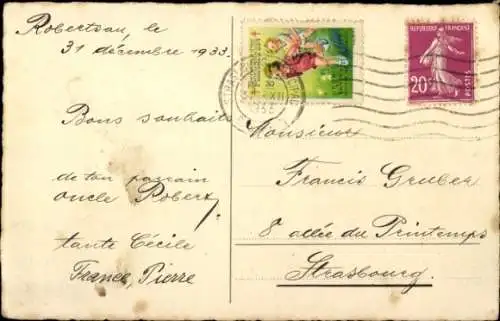 Robertsau, le
31 décembre 1933.
Bons souhaits
de ton parrain
oncle Robert,
tante Cécile
France, Pierre
RÉPUBLIQUE FRANÇAISE
20c
POSTES
STRASBOURG
XII
Monsieur
Francis Gruber
8 allée du Printemps
Strasbourg.